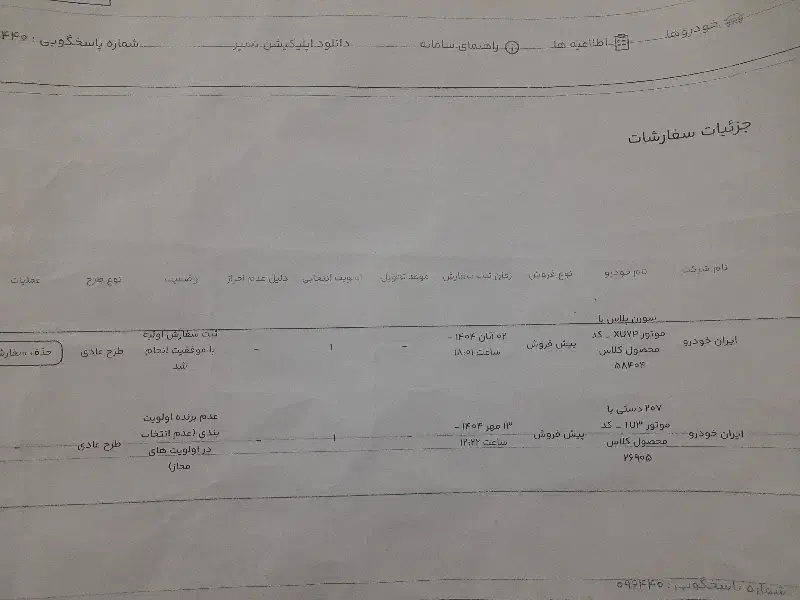 خودروها
اطلاعیه ها
راهنمای سامانه
دانلود اپلیکیشن
شماره پاسخگویی:
جزئیات سفارشات
نام شرکت نام خودرو نوع فروش زمان ثبت سفارش موعد تحویل اولویت انتخابی دلیل عدم احراز وضعیت نوع طرح عملیات
سورن پلاس با
موتور XU7P - کد
محصول کلاس
۵۸۴۰۴
ایران خودرو
پیش فروش
۰۲ آبان ۱۴۰۴ -
ساعت ۱۸:۰۱
-
۱
-
ثبت سفارش اولیه
با موفقیت انجام
شد
طرح عادی
حذف سفارش
۲۰۷ دستی با
موتور TU3 - کد
محصول کلاس
۲۶۹۰۵
ایران خودرو
پیش فروش
۱۳ مهر ۱۴۰۴ -
ساعت ۱۲:۲۲
-
۱
-
عدم برنده اولویت
بندی (عدم انتخاب
در اولویت های
مجاز)
طرح عادی
-
شماره پاسخگویی: ۰۹۶۴۴۰